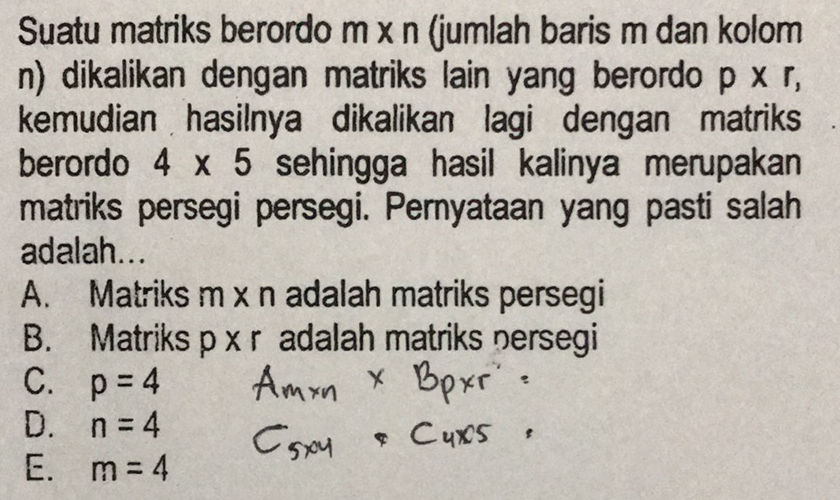 Suatu matriks berordo m x n (jumlah baris m dan kolom
n) dikalikan dengan matriks lain yang berordo p x r,
kemudian hasilnya dikalikan lagi dengan matriks
berordo 4 x 5 sehingga hasil kalinya merupakan
matriks persegi persegi. Pernyataan yang pasti salah
adalah...
A. Matriks m x n adalah matriks persegi
B. Matriks p x r adalah matriks persegi
C. p = 4 Amxn x Bpxr :
D. n = 4 C5x4 • C4x5 :
E. m = 4